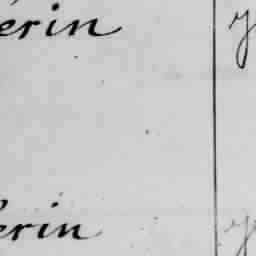 erin
erin